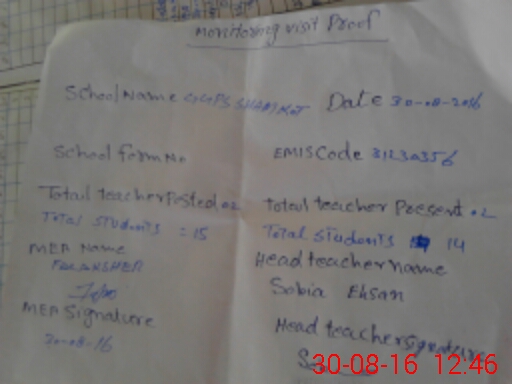 Monitoring visit Proof
School Name GGPS SHAMKOT Date 30-08-2016
School form No EMIS Code 31230356
Totail teacher Posted 02 Totail teacher Present 02
Total Students : 15 Total Students 14
MEA Name Head teacher name
Sobia Ehsan
MEA Signature Head teacher Signature
30-08-16
30-08-16 12:46